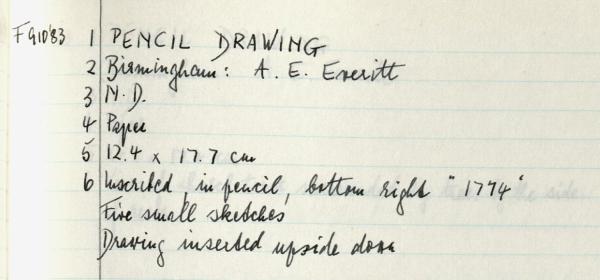 F910'83 1 PENCIL DRAWING
2 Birmingham: A. E. Everitt
3 N.D.
4 Paper
5 12.4 x 17.7 cm
6 Inscribed in pencil, bottom right "1774"
Five small sketches
Drawing inserted upside down